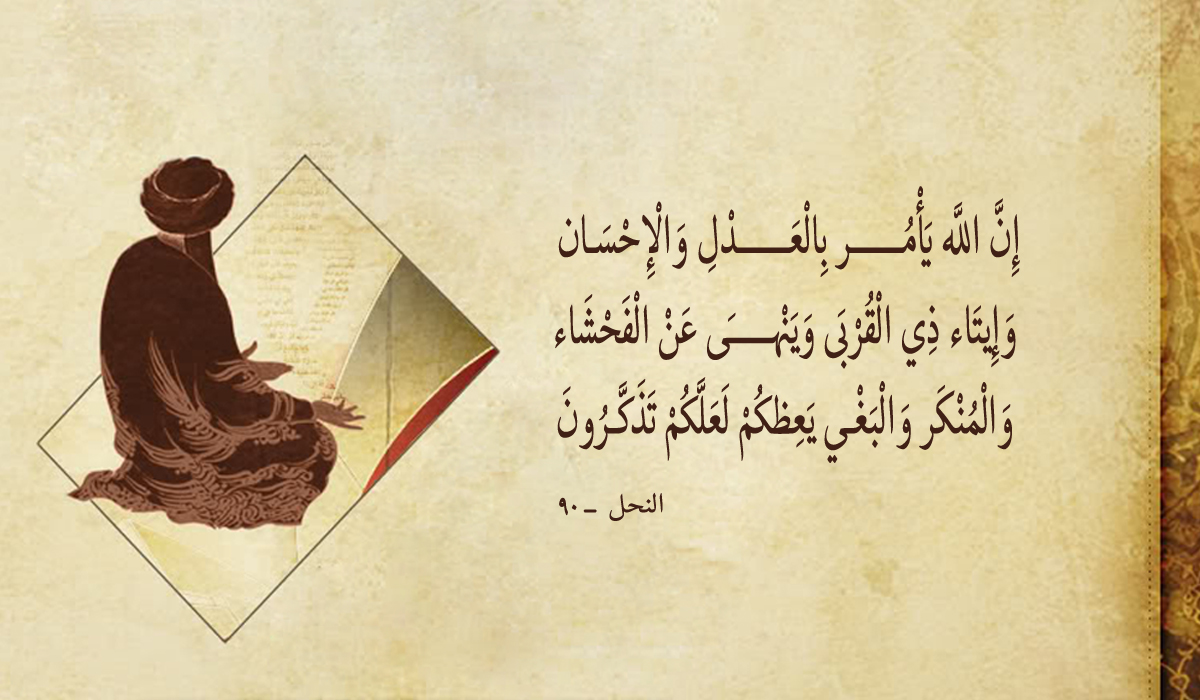 إِنَّ اللَّه يَأْمُــــر بِالْعَــــدْلِ وَالْإِحْسَـان
وَإِيتَاء ذِي الْقُرْبَى وَيَنْهــــَى عَنْ الْفَحْشَاء
وَالْمُنْكَر وَالْبَغْـي يَعِظكُمْ لَعَلَّكُمْ تَذَكَّـرُونَ
النحل - ٩٠